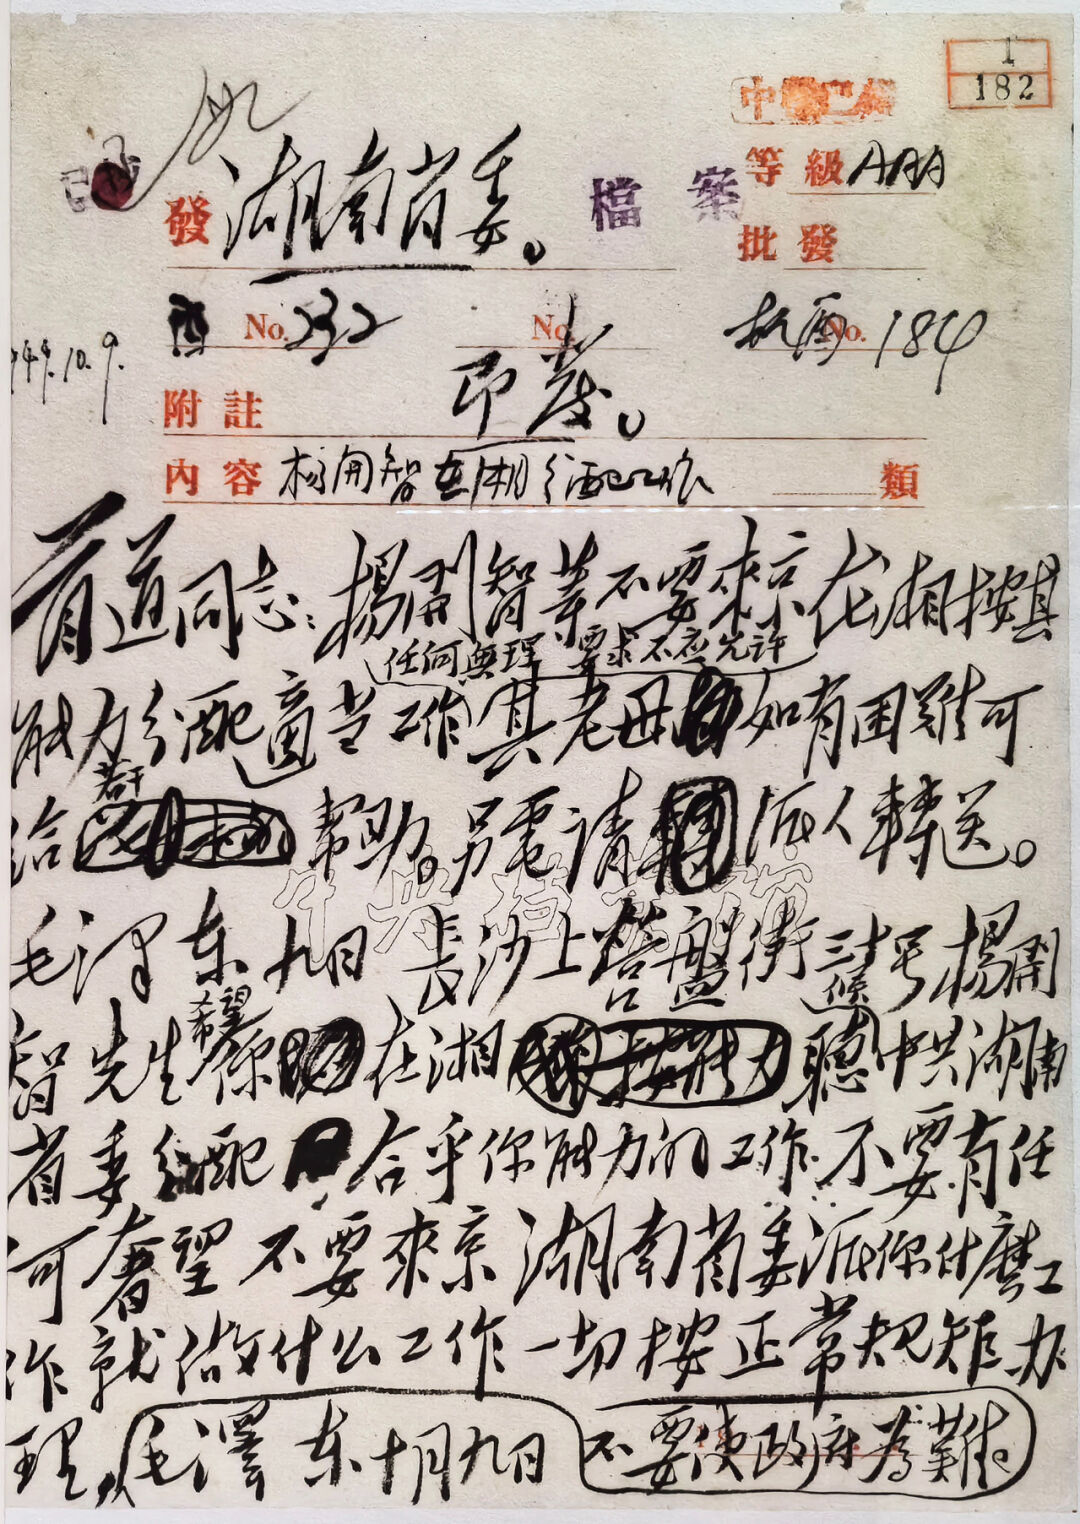 1
182
等級 AAA
檔案
發 湖南省委。
批發
No. 232 No. 184
No.
即發。
49.10.9.
附註
內容 杨開智在湘分配工作 類
首道同志：楊開智等不要來京在湘按其
任何無理要求不应允許
能力分配適当工作其老母如有困難可
若干
给帮助。另電请派人轉送。
中央檔案館
毛泽东九日 長沙上营盤街三十号楊開
智先生希望你在湘聽候中共湖南
省委分配合乎你能力的工作不要有任
何奢望不要來京湖南省委派你什麽工
作就做什么工作一切按正常规矩办
理 毛澤东十月九日 不要使政府為難。